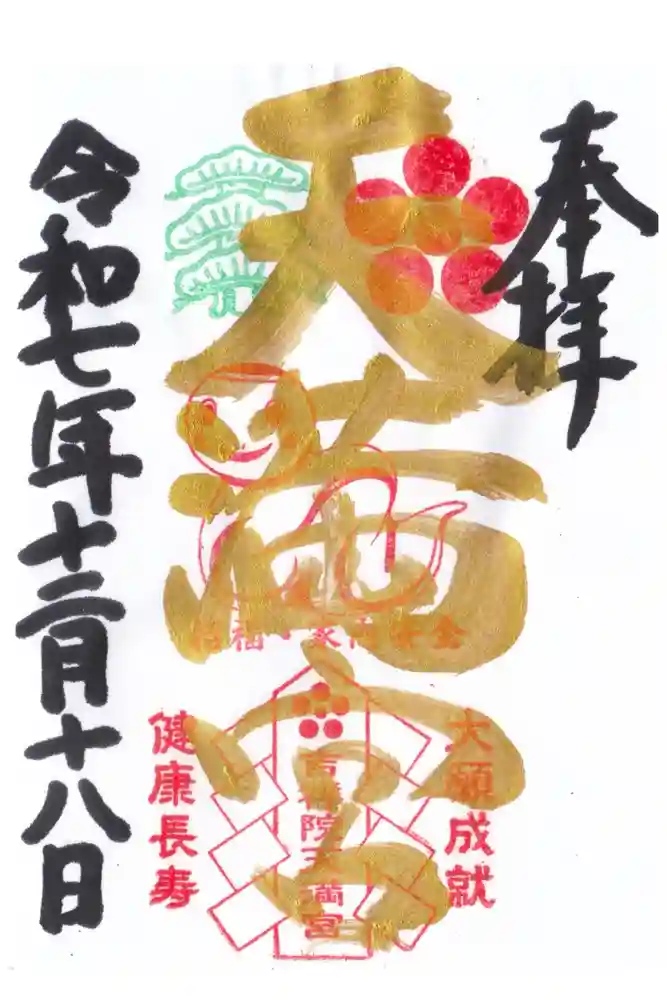 奉拝
天満宮
招福・家内安全
大願成就
吉祥院天満宮
健康長寿
令和七年十二月十八日